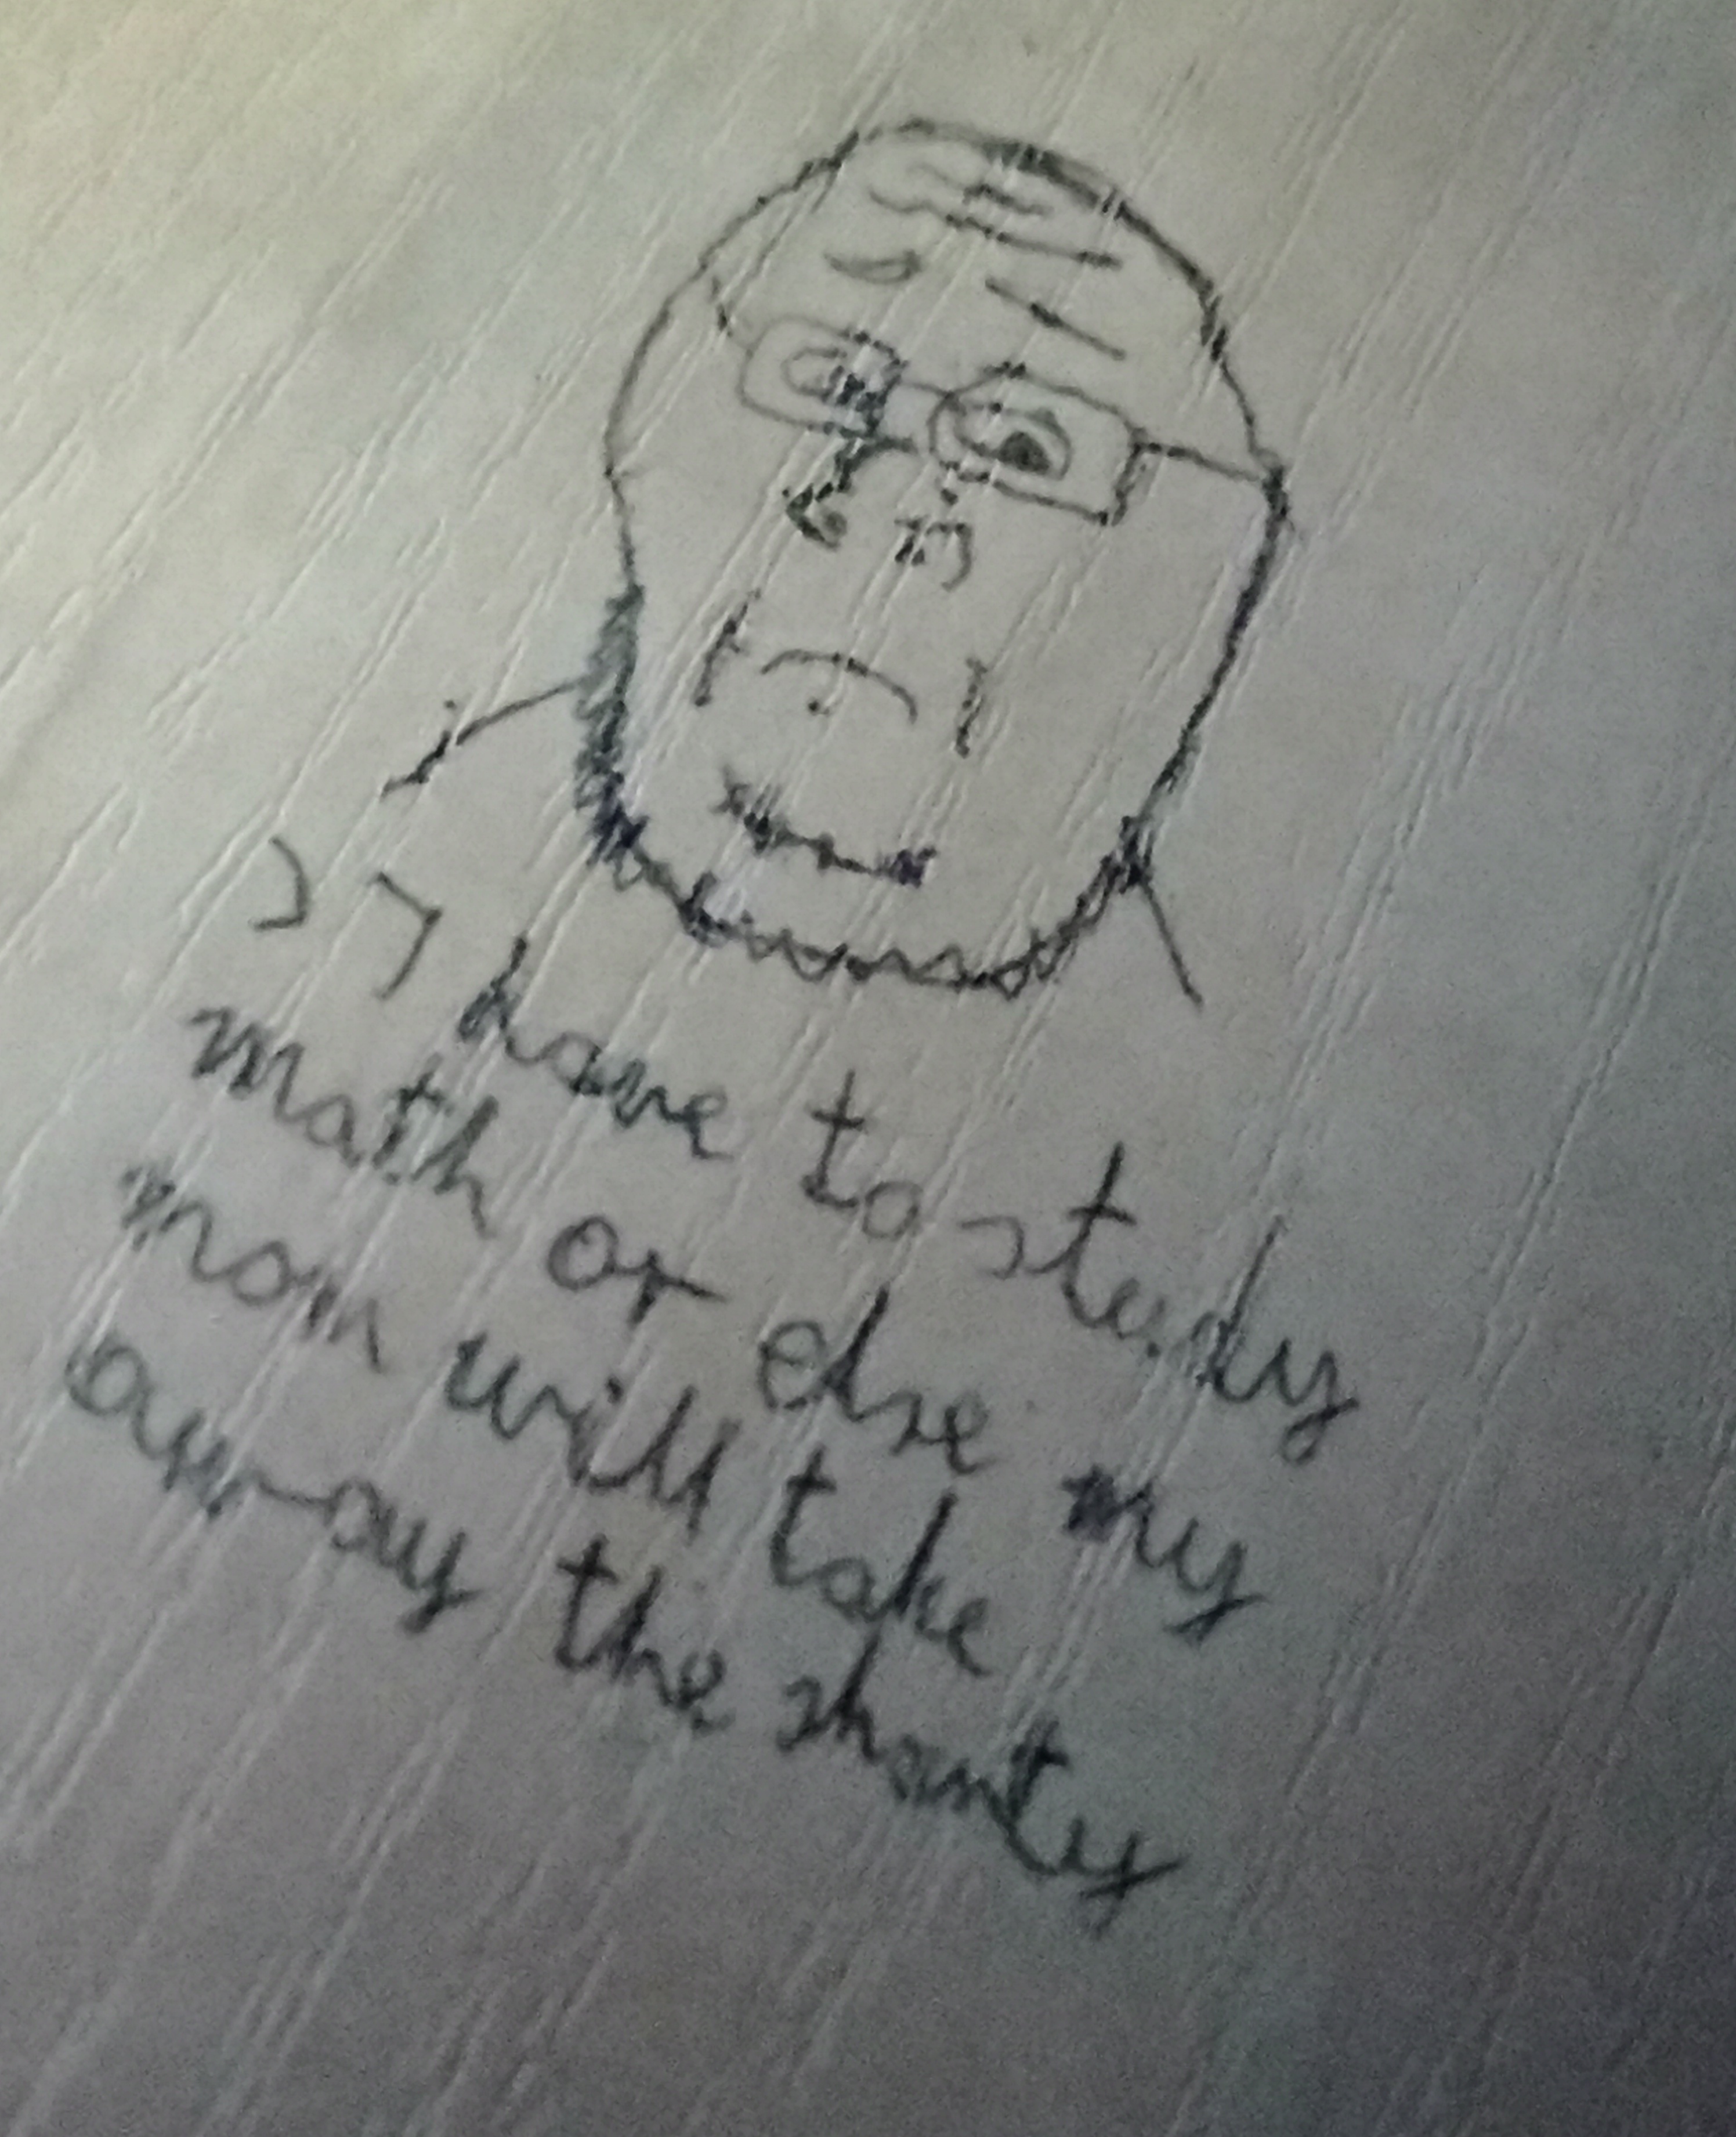 >> have to study
math or else my
mom will take
away the shanty